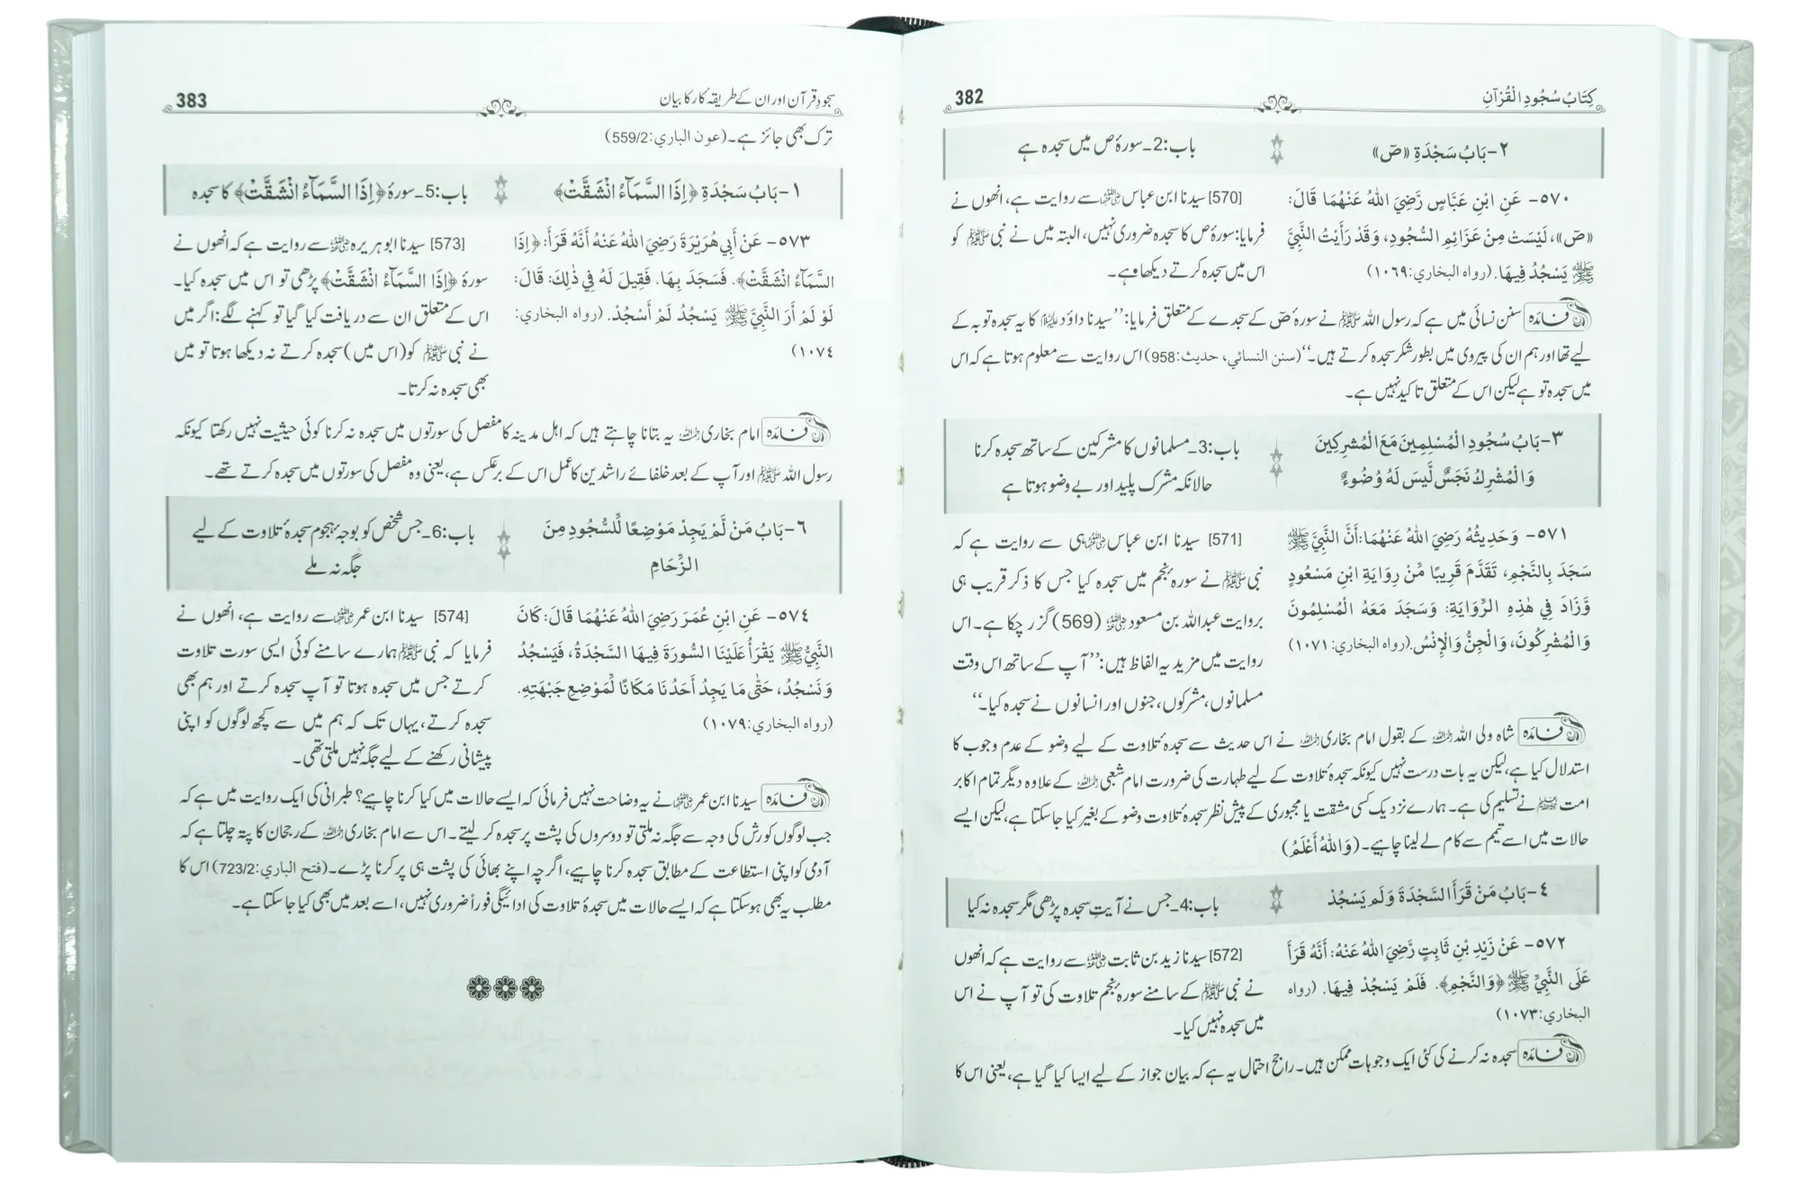 كِتَابُ سُجُودِ الْقُرْآنِ
382
٢- بَابُ سَجْدَةِ «صٓ»
باب:2۔ سورۂ ص میں سجدہ ہے
٥٧٠- عَنِ ابْنِ عَبَّاسٍ رَّضِيَ اللهُ عَنْهُمَا قَالَ:
«صٓ»، لَيْسَتْ مِنْ عَزَائِمِ السُّجُودِ، وَقَدْ رَأَيْتُ النَّبِيَّ
ﷺ يَسْجُدُ فِيهَا. (رواه البخاري:١٠٦٩)
[570] سیدنا ابن عباس ؓ سے روایت ہے، انھوں نے
فرمایا: سورۂ ص کا سجدہ ضروری نہیں، البتہ میں نے نبی ﷺ کو
اس میں سجدہ کرتے دیکھا ہے۔
فائدہ سنن نسائی میں ہے کہ رسول اللہ ﷺ نے سورۂ صٓ کے سجدے کے متعلق فرمایا: ’’سیدنا داؤد ؑ کا یہ سجدہ توبہ کے
لیے تھا اور ہم ان کی پیروی میں بطور شکر سجدہ کرتے ہیں۔‘‘ (سنن النسائي، حديث:958) اس روایت سے معلوم ہوتا ہے کہ اس
میں سجدہ تو ہے لیکن اس کے متعلق تاکید نہیں ہے۔
٣- بَابُ سُجُودِ الْمُسْلِمِينَ مَعَ الْمُشْرِكِينَ
وَالْمُشْرِكُ نَجَسٌ لَّيْسَ لَهُ وُضُوءٌ
باب:3۔ مسلمانوں کا مشرکین کے ساتھ سجدہ کرنا
حالانکہ مشرک پلید اور بے وضو ہوتا ہے
٥٧١- وَحَدِيثُهُ رَضِيَ اللهُ عَنْهُمَا: أَنَّ النَّبِيَّ ﷺ
سَجَدَ بِالنَّجْمِ، تَقَدَّمَ قَرِيبًا مِّنْ رِوَايَةِ ابْنِ مَسْعُودٍ
وَّزَادَ فِي هٰذِهِ الرِّوَايَةِ: وَسَجَدَ مَعَهُ الْمُسْلِمُونَ
وَالْمُشْرِكُونَ، وَالْجِنُّ وَالْإِنْسُ. (رواه البخاري:١٠٧١)
[571] سیدنا ابن عباس ؓ ہی سے روایت ہے کہ
نبی ﷺ نے سورۂ نجم میں سجدہ کیا جس کا ذکر قریب ہی
بروایت عبداللہ بن مسعود ؓ (569) گزر چکا ہے۔ اس
روایت میں مزید یہ الفاظ ہیں: ’’آپ کے ساتھ اس وقت
مسلمانوں، مشرکوں، جنوں اور انسانوں نے سجدہ کیا۔‘‘
فائدہ شاہ ولی اللہ ؒ کے بقول امام بخاری ؒ نے اس حدیث سے سجدۂ تلاوت کے لیے وضو کے عدم وجوب کا
استدلال کیا ہے، لیکن یہ بات درست نہیں کیونکہ سجدۂ تلاوت کے لیے طہارت کی ضرورت امام شعبی ؒ کے علاوہ دیگر تمام اکابر
امت نے تسلیم کی ہے۔ ہمارے نزدیک کسی مشقت یا مجبوری کے پیش نظر سجدۂ تلاوت وضو کے بغیر کیا جا سکتا ہے، لیکن ایسے
حالات میں اسے تیمم سے کام لے لینا چاہیے۔ (وَاللهُ أَعْلَمُ)
٤- بَابُ مَنْ قَرَأَ السَّجْدَةَ وَلَم يَسْجُدْ
باب:4۔ جس نے آیتِ سجدہ پڑھی مگر سجدہ نہ کیا
٥٧٢- عَنْ زَيْدِ بْنِ ثَابِتٍ رَّضِيَ اللهُ عَنْهُ: أَنَّهُ قَرَأَ
عَلَى النَّبِيِّ ﷺ ﴿وَالنَّجْمِ﴾. فَلَمْ يَسْجُدْ فِيهَا. (رواه
البخاري:١٠٧٣)
[572] سیدنا زید بن ثابت ؓ سے روایت ہے کہ انھوں
نے نبی ﷺ کے سامنے سورۂ نجم تلاوت کی تو آپ نے اس
میں سجدہ نہیں کیا۔
فائدہ سجدہ نہ کرنے کی کئی ایک وجوہات ممکن ہیں۔ راجح احتمال یہ ہے کہ بیان جواز کے لیے ایسا کیا گیا ہے، یعنی اس کا
سجود قرآن اور ان کے طریقہ کار کا بیان
383
ترک بھی جائز ہے۔ (عون الباري:559/2)
١- بَابُ سَجْدَةِ ﴿إِذَا السَّمَآءُ انْشَقَّتْ﴾
باب:5۔ سورۂ ﴿إِذَا السَّمَآءُ انْشَقَّتْ﴾ کا سجدہ
٥٧٣- عَنْ أَبِي هُرَيْرَةَ رَضِيَ اللهُ عَنْهُ أَنَّهُ قَرَأَ: ﴿إِذَا
السَّمَآءُ انْشَقَّتْ﴾. فَسَجَدَ بِهَا. فَقِيلَ لَهُ فِي ذٰلِكَ: قَالَ:
لَوْ لَمْ أَرَ النَّبِيَّ ﷺ يَسْجُدُ لَمْ أَسْجُدْ. (رواه البخاري:
١٠٧٤)
[573] سیدنا ابو ہریرہ ؓ سے روایت ہے کہ انھوں نے
سورۂ ﴿إِذَا السَّمَآءُ انْشَقَّتْ﴾ پڑھی تو اس میں سجدہ کیا۔
اس کے متعلق ان سے دریافت کیا گیا تو کہنے لگے: اگر میں
نے نبی ﷺ کو (اس میں) سجدہ کرتے نہ دیکھا ہوتا تو میں
بھی سجدہ نہ کرتا۔
فائدہ امام بخاری ؒ یہ بتانا چاہتے ہیں کہ اہل مدینہ کا مفصل کی سورتوں میں سجدہ نہ کرنا کوئی حیثیت نہیں رکھتا کیونکہ
رسول اللہ ﷺ اور آپ کے بعد خلفائے راشدین کا عمل اس کے برعکس ہے، یعنی وہ مفصل کی سورتوں میں سجدہ کرتے تھے۔
٦- بَابُ مَنْ لَّمْ يَجِدْ مَوْضِعًا لِّلسُّجُودِ مِنَ
الزِّحَامِ
باب:6۔ جس شخص کو بوجہ ہجوم سجدۂ تلاوت کے لیے
جگہ نہ ملے
٥٧٤- عَنِ ابْنِ عُمَرَ رَضِيَ اللهُ عَنْهُمَا قَالَ: كَانَ
النَّبِيُّ ﷺ يَقْرَأُ عَلَيْنَا السُّورَةَ فِيهَا السَّجْدَةُ، فَيَسْجُدُ
وَنَسْجُدُ، حَتّٰى مَا يَجِدُ أَحَدُنَا مَكَانًا لِّمَوْضِعِ جَبْهَتِهِ.
(رواه البخاري:١٠٧٩)
[574] سیدنا ابن عمر ؓ سے روایت ہے، انھوں نے
فرمایا کہ نبی ﷺ ہمارے سامنے کوئی ایسی سورت تلاوت
کرتے جس میں سجدہ ہوتا تو آپ سجدہ کرتے اور ہم بھی
سجدہ کرتے، یہاں تک کہ ہم میں سے کچھ لوگوں کو اپنی
پیشانی رکھنے کے لیے جگہ نہیں ملتی تھی۔
فائدہ سیدنا ابن عمر ؓ نے یہ وضاحت نہیں فرمائی کہ ایسے حالات میں کیا کرنا چاہیے؟ طبرانی کی ایک روایت میں ہے کہ
جب لوگوں کو رش کی وجہ سے جگہ نہ ملتی تو دوسروں کی پشت پر سجدہ کر لیتے۔ اس سے امام بخاری ؒ کے رجحان کا پتہ چلتا ہے کہ
آدمی کو اپنی استطاعت کے مطابق سجدہ کرنا چاہیے، اگرچہ اپنے بھائی کی پشت ہی پر کرنا پڑے۔ (فتح الباري:723/2) اس کا
مطلب یہ بھی ہو سکتا ہے کہ ایسے حالات میں سجدۂ تلاوت کی ادائیگی فوراً ضروری نہیں، اسے بعد میں بھی کیا جا سکتا ہے۔